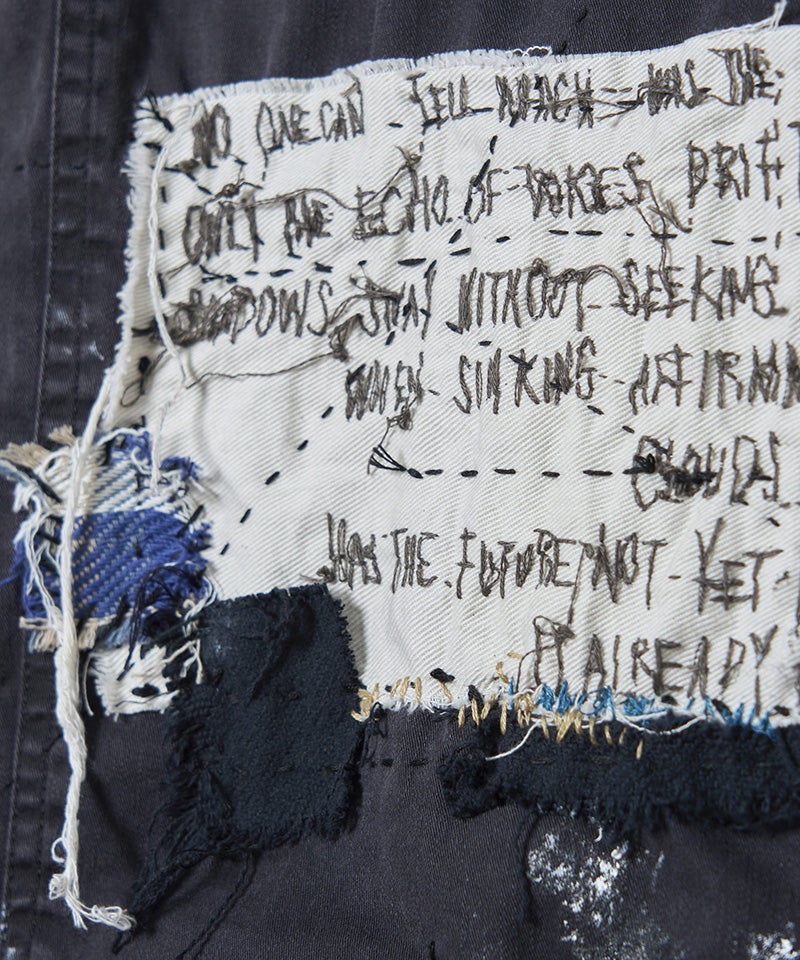 NO ONE CAN TELL WHICH WAS THE
ONLY THE ECHO OF VOICES DRIFT
SHADOWS SWAY WITHOUT SEEKING
WHEN SINKING
CLOUDS
WAS THE FUTURE NOT YET
IT ALREADY